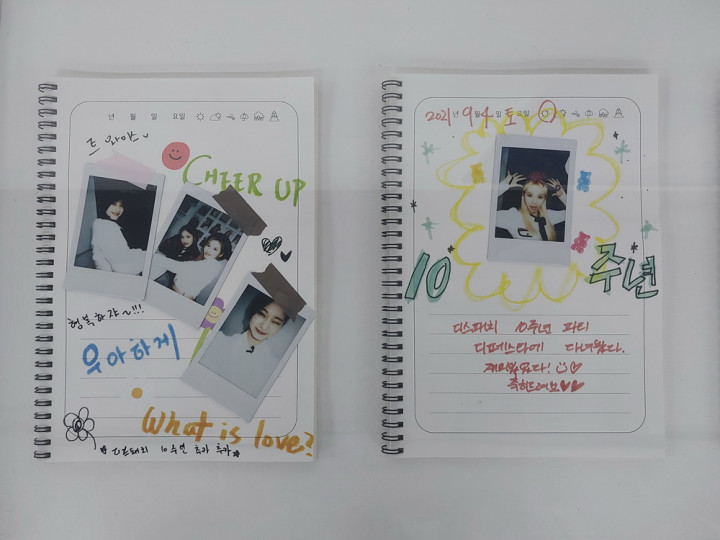 년 월 일 요일
트와이스
CHEER UP
행복하쟈~!!!
우아하게
What is love?
디스패치 10주년 축카 축카
2021년 9월 4일 토요일
10주년
디스패치 10주년 파티
디페스타에 다녀왔다.
재미있었다!
축하드려요